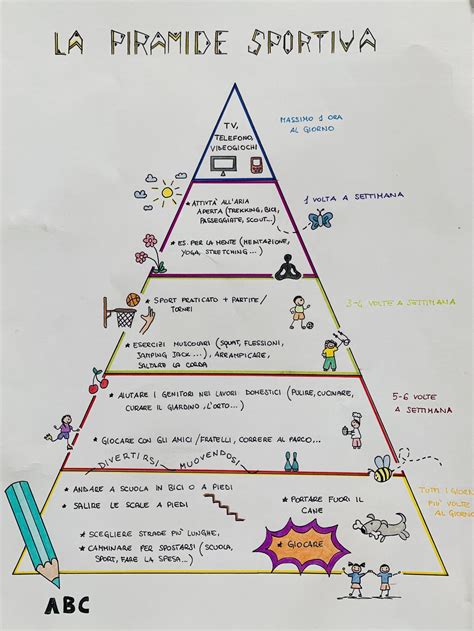 LA PIRAMIDE SPORTIVA
TV,
TELEFONO,
VIDEOGIOCHI
MASSIMO 1 ORA
AL GIORNO
* ATTIVITÀ ALL'ARIA
APERTA (TREKKING, BICI,
PASSEGGIATE, SCOUT...)
* ES. PER LA MENTE (MEDITAZIONE,
YOGA, STRETCHING...)
1 VOLTA A SETTIMANA
* SPORT PRATICATO + PARTITE/
TORNEI
* ESERCIZI MUSCOLARI (SQUAT, FLESSIONI,
JAMPING JACK...), ARRAMPICARE,
SALTARE LA CORDA
VOLTE A SETTIMANA
* AIUTARE I GENITORI NEI LAVORI DOMESTICI (PULIRE, CUCINARE,
CURARE IL GIARDINO, L'ORTO...)
* GIOCARE CON GLI AMICI/FRATELLI, CORRERE AL PARCO...
5-6 VOLTE
A SETTIMANA
DIVERTIRSI MUOVENDOSI
* ANDARE A SCUOLA IN BICI O A PIEDI
* SALIRE LE SCALE A PIEDI
* SCEGLIERE STRADE PIÙ LUNGHE,
* CAMMINARE PER SPOSTARSI (SCUOLA,
SPORT, FARE LA SPESA...)
* PORTARE FUORI IL
CANE
* GIOCARE
TUTTI I GIORNI
PIÙ VOLTE
AL GIORNO
ABC